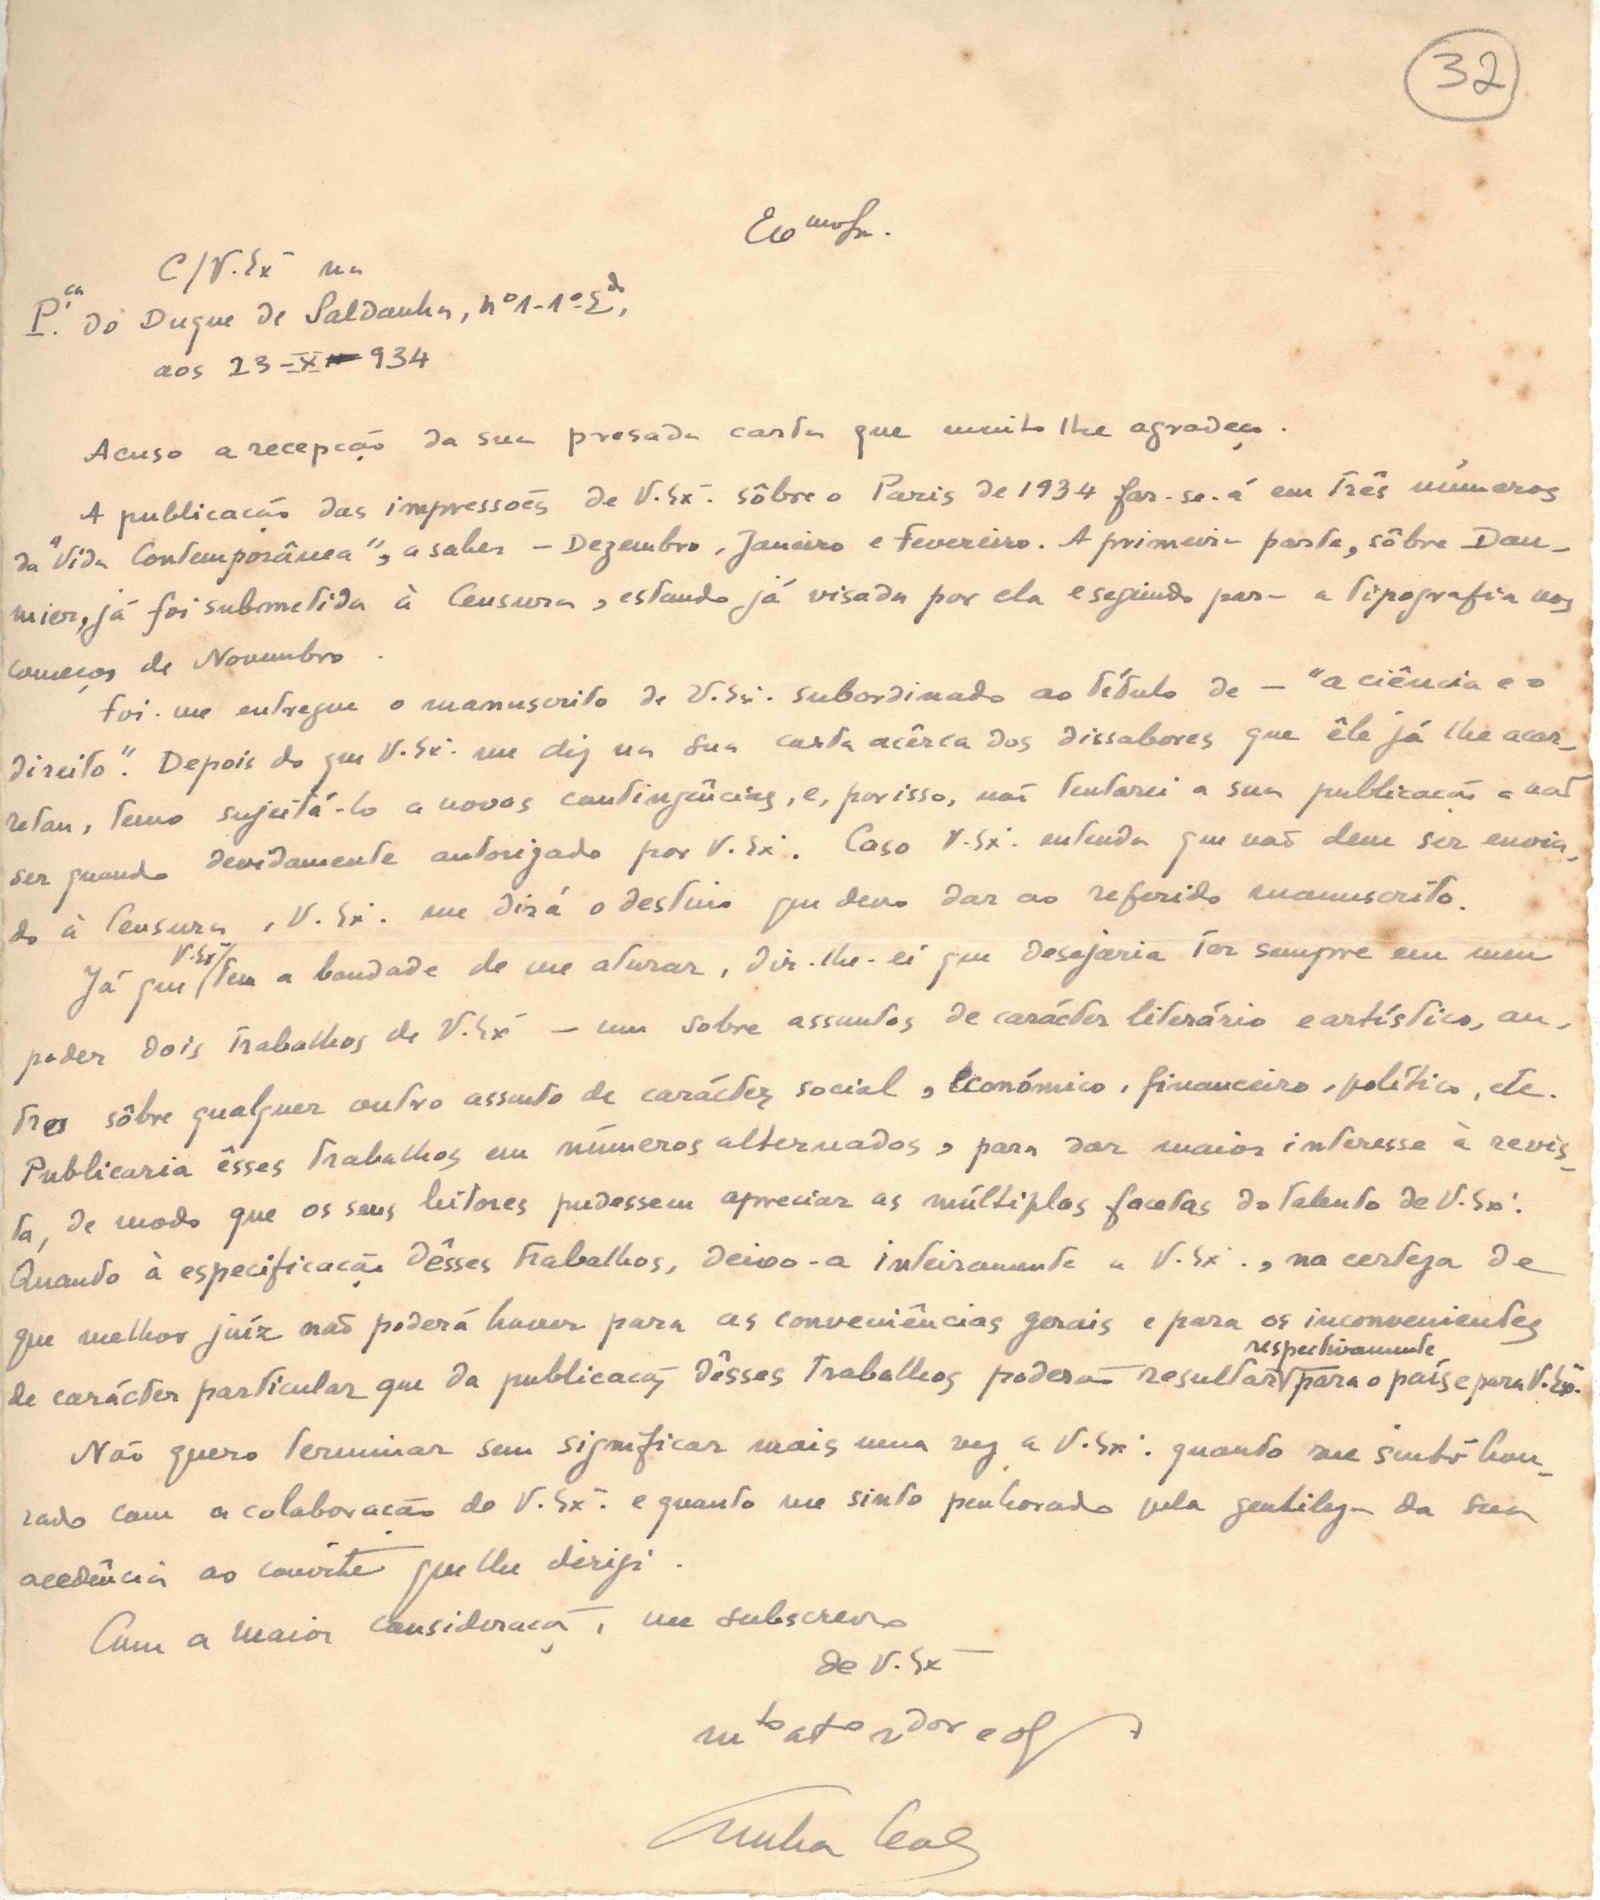 32
Exmo Sr.
C/V. Exª na
P.ça do Duque de Saldanha, nº 1-1º-Edº,
aos 23-X-934
Acuso a recepção da sua presada carta que muito lhe agradeço.
A publicação das impressões de V. Exª. sôbre o Paris de 1934 far-se-á em três números
da "Vida Contemporânea", a saber - Dezembro, Janeiro e Fevereiro. A primeira parte, sôbre Dau-
mier, já foi submetida à Censura, estando já visada por ela e seguindo para a tipografia nos
começos de Novembro.
Foi-me entregue o manuscrito de V. Exª. subordinado ao título de - "a ciência e o
direito". Depois do que V. Exª. me diz na sua carta acêrca dos dissabores que êle já lhe acar-
retou, temo sujeitá-lo a novas contingências, e, porisso, não tentarei a sua publicação a não
ser quando devidamente autorizado por V. Exª. Caso V. Exª. entenda que não deve ser envia-
do à Censura, V. Exª. me dirá o destino que devo dar ao referido manuscrito.
Já que V. Exª tem a bondade de me aturar, dir-lhe-ei que desejaria ter sempre em meu
poder dois trabalhos de V. Exª - um sobre assuntos de carácter literário e artístico, ou-
tro sôbre qualquer outro assunto de carácter social, económico, financeiro, político, etc.
Publicaria êsses trabalhos em números alternados, para dar maior interesse à revis-
ta, de modo que os seus leitores pudessem apreciar as múltiplas facetas do talento de V. Exª.
Quanto à especificação dêsses trabalhos, deixo-a inteiramente a V. Exª., na certeza de
que melhor juíz não poderá haver para as conveniências gerais e para os inconvenientes
de carácter particular que da publicação dêsses trabalhos poderão resultar respectivamente para o país e para V. Exª.
Não quero terminar sem significar mais uma vez a V. Exª. quanto me sinto hon-
rado com a colaboração de V. Exª. e quanto me sinto penhorado pela gentileza da sua
acedência ao convite que lhe dirigi.
Com a maior consideração, me subscrevo
de V. Exª
mto atto vdor e obg
Cunha Leal